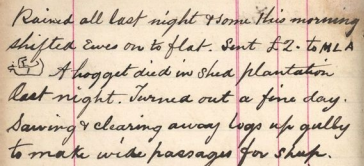 Rained all last night & some this morning
shifted Ewes on to flat. Sent £2. to MLA
A hogget died in shed plantation
last night. Turned out a fine day.
Sawing & clearing away logs up gully
to make wide passages for sheep.